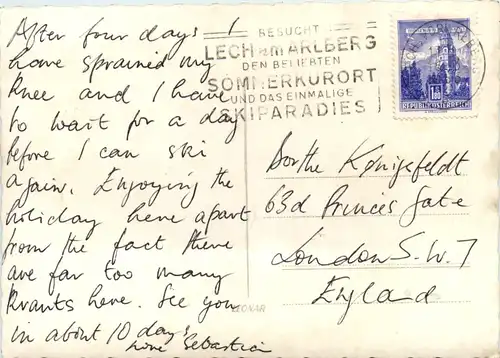 After four days I
have sprained my
knee and I have
to wait for a day
before I can ski
again. Enjoying the
holiday here apart
from the fact there
are far too many
here. See you
in about 10 days
love Sebastian
BESUCHT
LECH am ARLBERG
DEN BELIEBTEN
SOMMERKURORT
UND DAS EINMALIGE
SKIPARADIES
1.80
REPUBLIK ÖSTERREICH
Dorthe Königsfeldt
63d Princes Gate
London S.W.7
England
LEONAR